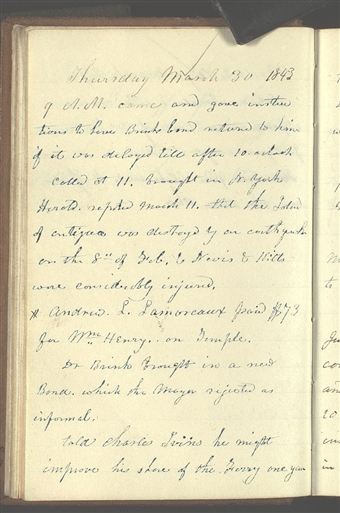 Thursday March 30 1843
9 A.M. came and gave instruc
tions to have Brinks bond returned to him
if it was delayed till after 10 oclock
called at 11. brought in N. York
Herald. reported March 11. that the Island
of antigua was destroyed by an earthquake
on the 8th of Feb. & Nevis & Kitts
were considerably injured.
x Andrew L. Lamoreaux paid $73
for Wm Henry. on Temple.
Dr Brink brought in a new
Bond. which the Mayor rejected as
informal.
told Charles Ivins he might
improve his share of the Ferry one year